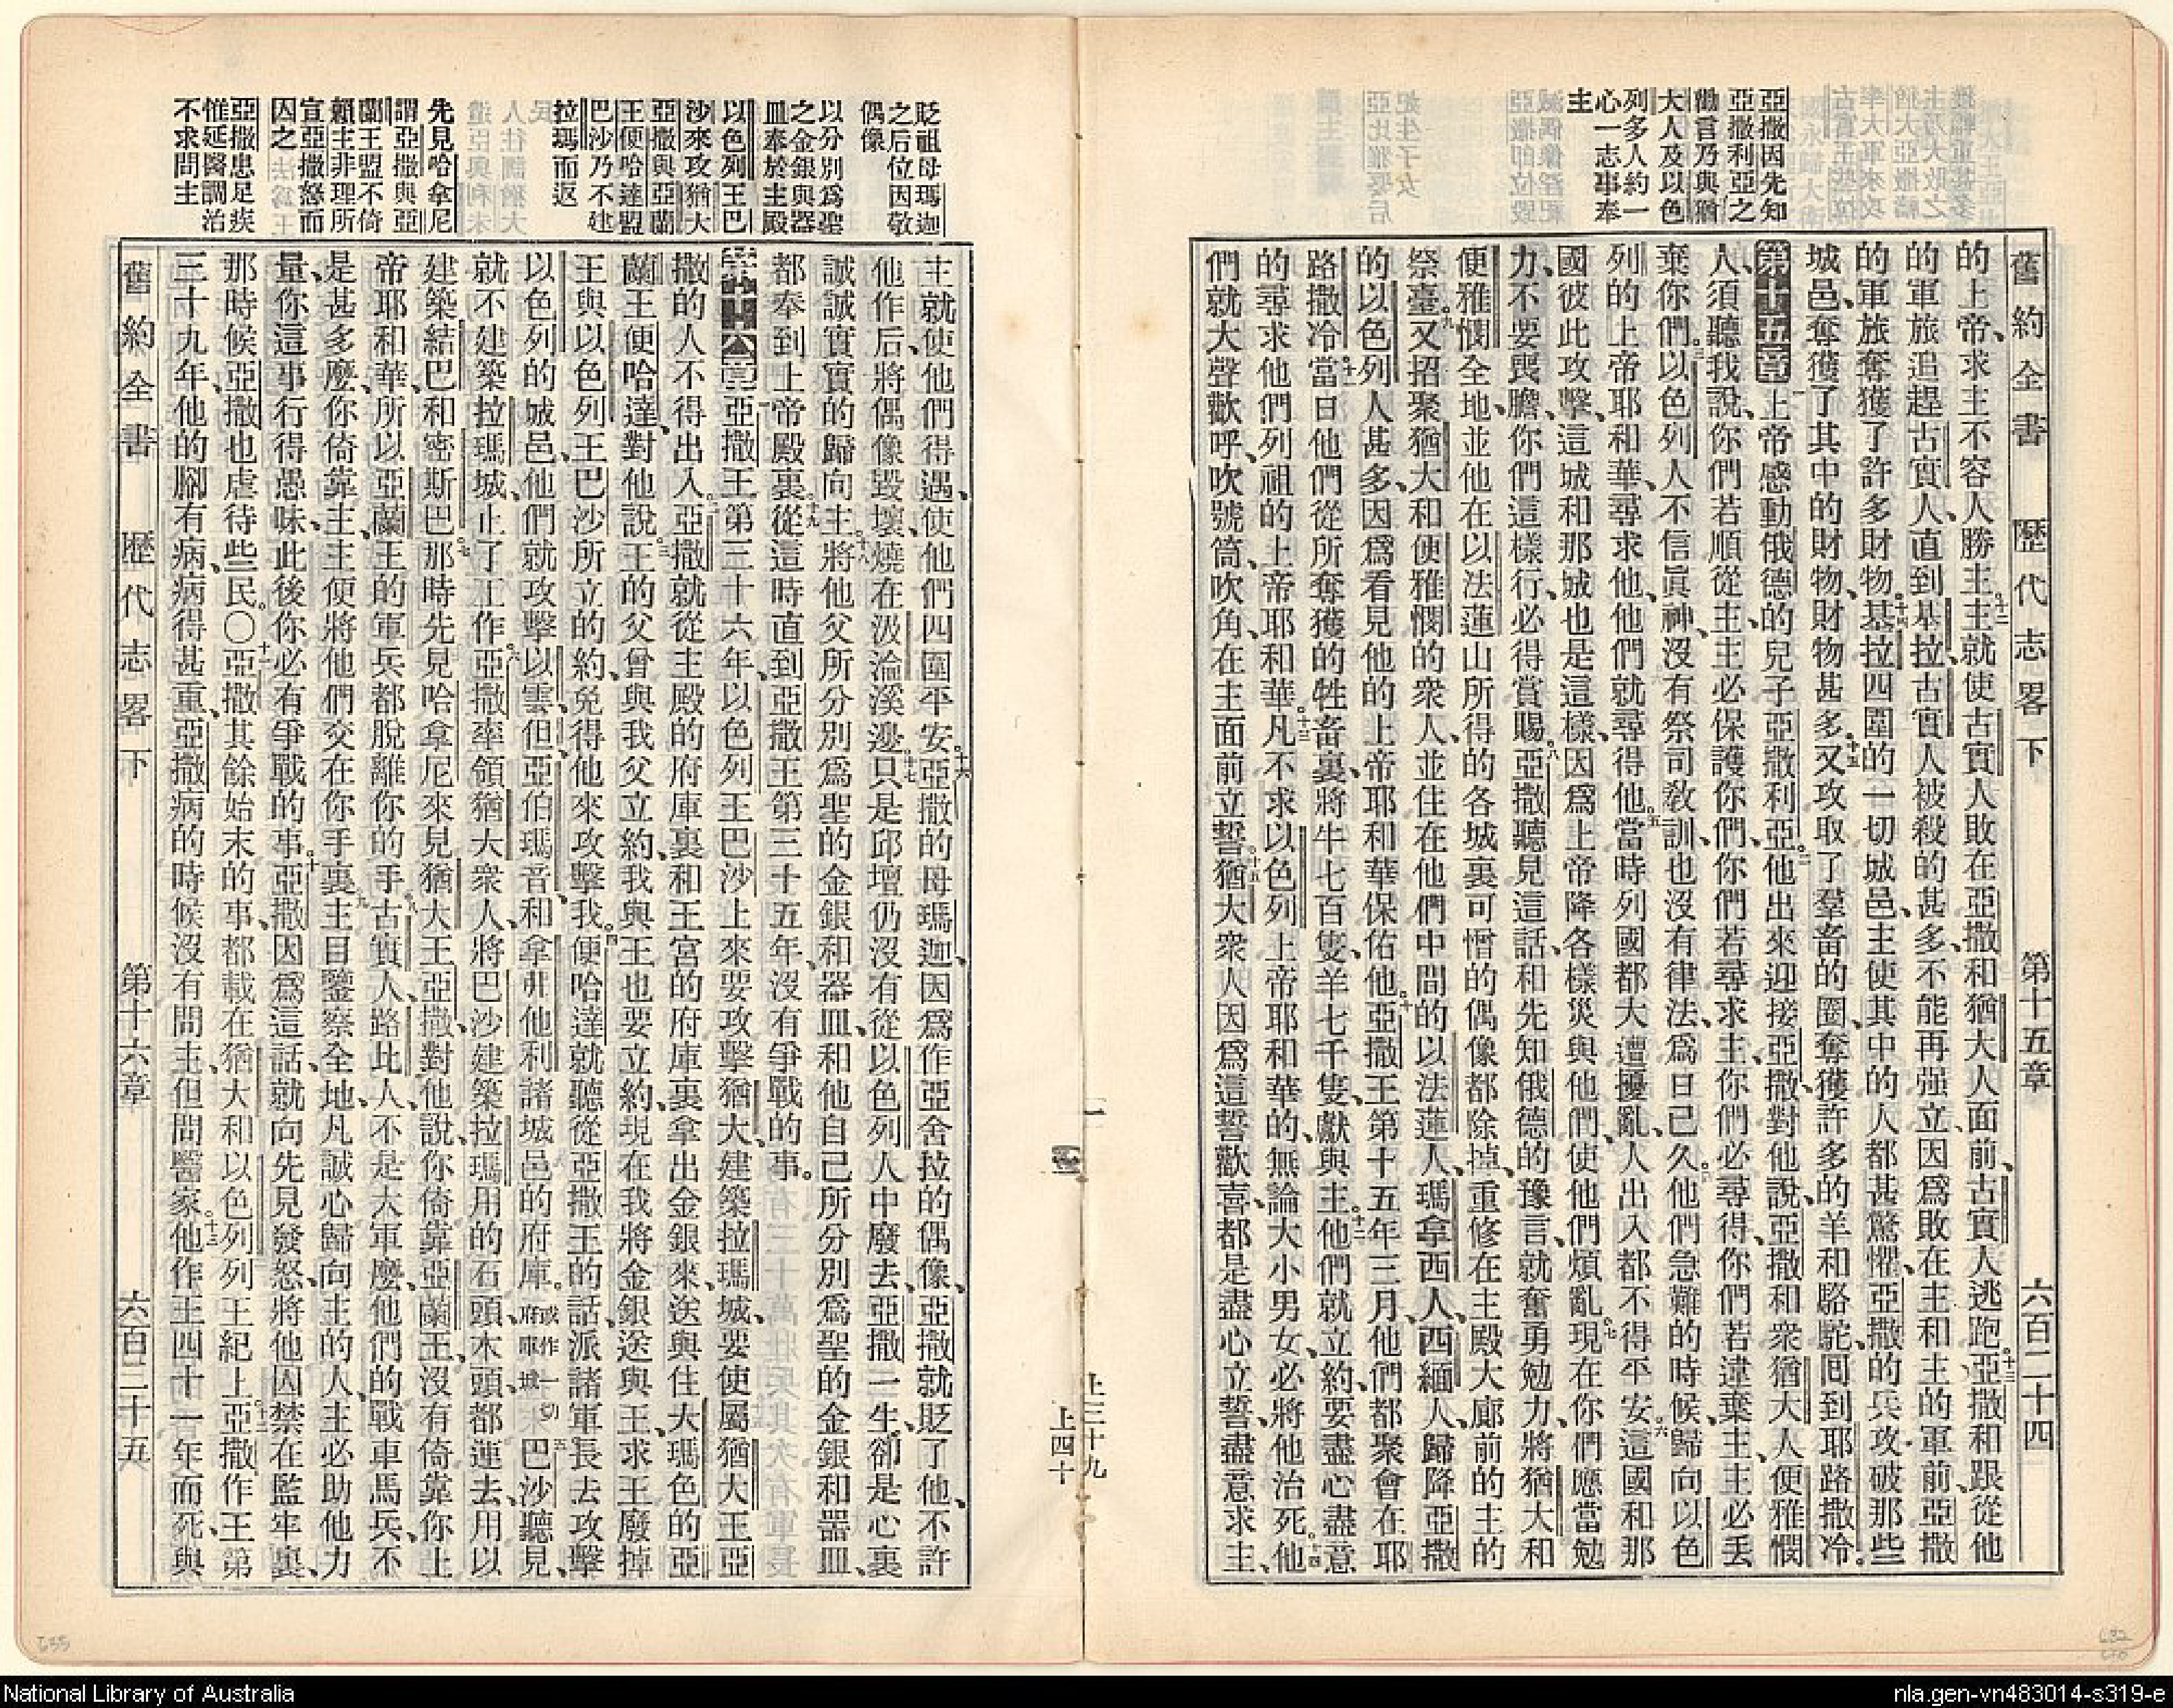 舊約全書　歷代志畧下　第十五章　六百二十四
亞撒因先知
亞撒利亞之
勸言乃與猶
大人及以色
列多人約一
心一志事奉
主
的上帝、求主不容人勝主。十二主就使古實人敗在亞撒和猶大人面前、古實人逃跑。十三亞撒和跟從他
的軍旅追趕古實人、直到基拉、古實人被殺的甚多、不能再强立、因爲敗在主和主的軍前、亞撒
的軍旅奪獲了許多財物。十四基拉四圍的一切城邑、主使其中的人都甚驚懼、亞撒的兵攻破那些
城邑、奪獲了其中的財物、財物甚多。十五又攻取了羣畜的圈、奪獲許多的羊和駱駝、囘到耶路撒冷。
第十五章 一上帝感動俄德的兒子亞撒利亞。二他出來迎接亞撒、對他說、亞撒和衆猶大人便雅憫
人、須聽我說、你們若順從主、主必保護你們、你們若尋求主、你們必尋得、你們若違棄主、主必丟
棄你們。三以色列人不信眞神、沒有祭司敎訓、也沒有律法、爲日已久。四他們急難的時候、歸向以色
列的上帝耶和華、尋求他、他們就尋得他。五當時列國都大遭擾亂、人出入都不得平安。六這國和那
國彼此攻擊、這城和那城也是這樣、因爲上帝降各樣災與他們、使他們煩亂。七現在你們應當勉
力、不要喪膽、你們這樣行、必得賞賜。八亞撒聽見這話、和先知俄德的豫言、就奮勇勉力、將猶大和
便雅憫全地、並他在以法蓮山所得的各城裏可憎的偶像都除掉、重修在主殿大廊前的主的
祭臺。九又招聚猶大和便雅憫的衆人、並住在他們中間的以法蓮人、瑪拿西人、西緬人、歸降亞撒
的以色列人甚多、因爲看見他的上帝耶和華保佑他。十亞撒王第十五年三月、他們都聚會在耶
路撒冷。十一當日他們從所奪獲的牲畜裏、將牛七百隻、羊七千隻、獻與主。十二他們就立約、要盡心盡意
的尋求他們列祖的上帝耶和華。十三凡不求以色列上帝耶和華的、無論大小男女、必將他治死。十四他
們就大聲歡呼、吹號筒、吹角、在主面前立誓。十五猶大衆人因爲這誓歡喜、都是盡心立誓、盡意求主、
上三十九
上四十
貶祖母瑪迦
之后位因敬
偶像
以分別爲聖
之金銀與器
皿奉於主殿
以色列王巴
沙來攻猶大
亞撒與亞蘭
王便哈達盟
巴沙乃不建
拉瑪而返
先見哈拿尼
謂亞撒與亞
蘭王盟不倚
賴主非理所
宣亞撒怒而
囚之
亞撒患足疾
惟延醫調治
不求問主
主就使他們得遇、使他們四圍平安。十六亞撒的母瑪迦、因爲作亞舍拉的偶像、亞撒就貶了他、不許
他作后、將偶像毀壞、燒在汲淪溪邊。十七只是邱壇仍沒有從以色列人中廢去、亞撒一生、卻是心裏
誠誠實實的歸向主。十八將他父所分別爲聖的金銀和器皿、和他自己所分別爲聖的金銀和器皿、
都奉到上帝殿裏。十九從這時直到亞撒王第三十五年、沒有爭戰的事。
第十六章 一亞撒王第三十六年、以色列王巴沙上來要攻擊猶大、建築拉瑪城、要使屬猶大王亞
撒的人不得出入。二亞撒就從主殿的府庫裏和王宮的府庫裏拿出金銀來、送與住大瑪色的亞
蘭王便哈達、對他說。三王的父曾與我父立約、我與王也要立約、現在我將金銀送與王、求王廢掉
王與以色列王巴沙所立的約、免得他來攻擊我。四便哈達就聽從亞撒王的話、派諸軍長去攻擊
以色列的城邑、他們就攻擊以雲、但、亞伯瑪音、和拿弗他利諸城邑的府庫。或作一切府庫城五巴沙聽見、
就不建築拉瑪城、止了工作。六亞撒率領猶大衆人、將巴沙建築拉瑪用的石頭木頭都運去、用以
建築結巴和密斯巴。七那時先見哈拿尼來見猶大王亞撒、對他說、你倚靠亞蘭王、沒有倚靠你上
帝耶和華、所以亞蘭王的軍兵都脫離你的手。八古實人、路比人、不是大軍麼、他們的戰車馬兵、不
是甚多麼、你倚靠主、主便將他們交在你手裏。九主目鑒察全地、凡誠心歸向主的人、主必助他力
量、你這事行得愚昧、此後你必有爭戰的事。十亞撒因爲這話、就向先見發怒、將他囚禁在監牢裏、
那時候亞撒也虐待些民。〇十一亞撒其餘始末的事、都載在猶大和以色列列王紀上。十二亞撒作王第
三十九年、他的腳有病、病得甚重、亞撒病的時候沒有問主、但問醫家。十三他作王四十一年而死、與
舊約全書　歷代志畧下　第十六章　六百二十五
635
National Library of Australia
nla.gen-vn483014-s319-e